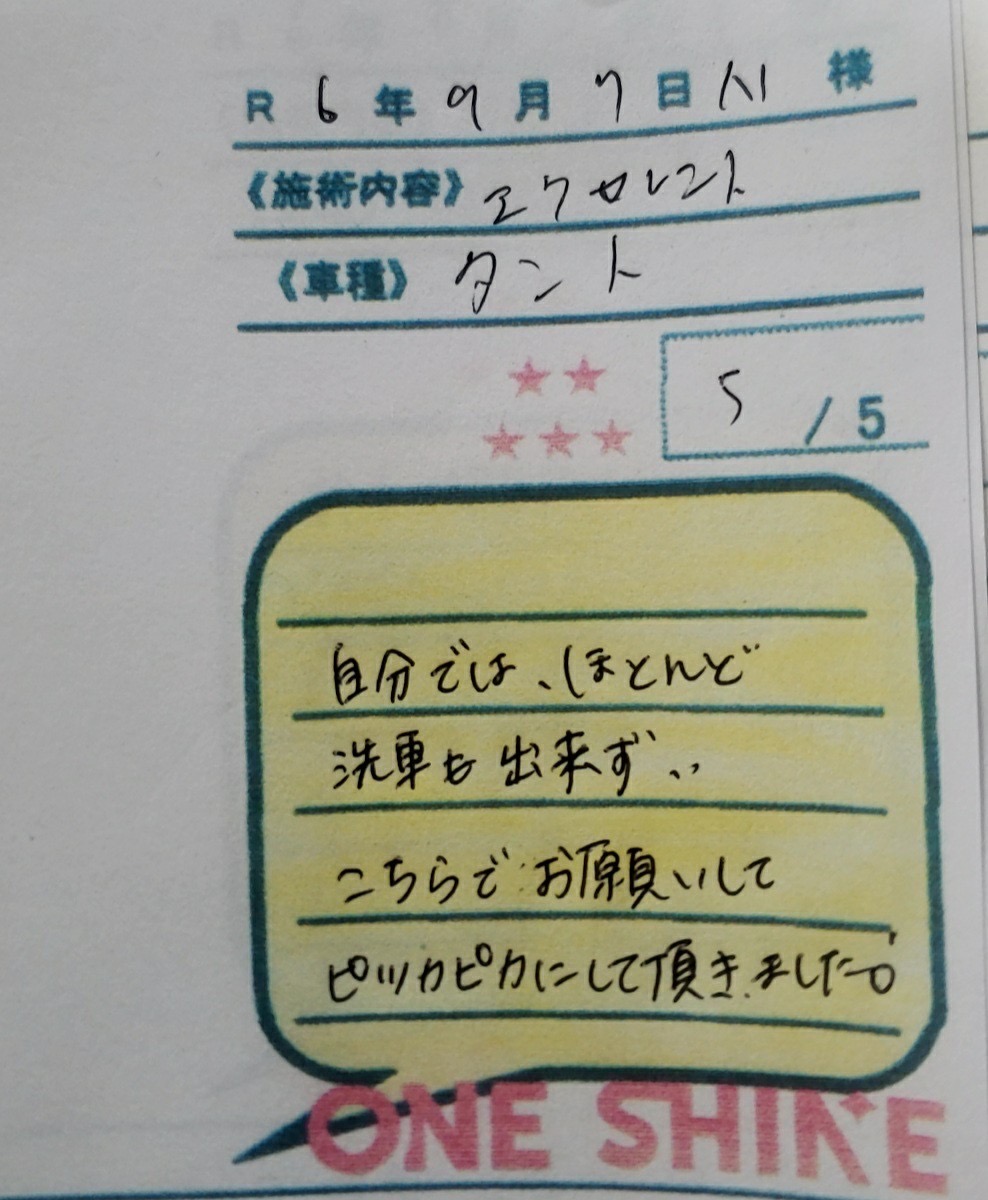 R 6 年 9 月 7 日 様
《施術内容》 エクセレント
《車種》 タント
5 / 5
自分では、ほとんど
洗車も出来ず、、
こちらでお願いして
ピッカピカにして頂きました!
ONE SHINE